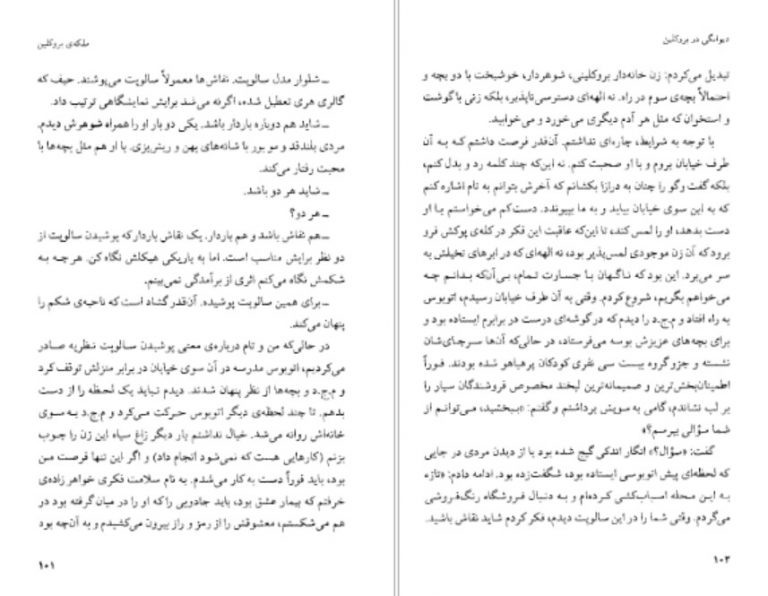 ملکه‌ی بروکلین
ــ شلوار مدل سالوپت. نقاش‌ها معمولاً سالوپت می‌پوشند. حیف که
گالری هری تعطیل شده، اگرنه می‌شد برایش نمایشگاهی ترتیب داد.
ــ شاید هم دوباره باردار باشد. یکی دو بار او را همراه شوهرش دیدم.
مردی بلندقد و مو بور با شانه‌های پهن و ریش‌بزی. با او هم مثل بچه‌ها با
محبت رفتار می‌کند.
ــ شاید هر دو باشد.
ــ هر دو؟
ــ هم نقاش باشد و هم باردار. یک نقاش باردار که پوشیدن سالوپت از
دو نظر برایش مناسب است. اما به باریکی هیکلش نگاه کن. هر چه به
شکمش نگاه می‌کنم اثری از برآمدگی نمی‌بینم.
ــ برای همین سالوپت پوشیده. آن‌قدر گشاد است که ناحیه‌ی شکم را
پنهان می‌کند.
در حالی‌که من و تام درباره‌ی معنی پوشیدن سالوپت نظریه صادر
می‌کردیم، اتوبوس مدرسه در آن سوی خیابان در برابر منزلش توقف کرد
و م.ج.د و بچه‌ها از نظر پنهان شدند. دیدم نباید یک لحظه را از دست
بدهم. تا چند لحظه‌ی دیگر اتوبوس حرکت می‌کرد و م.ج.د به سوی
خانه‌اش روانه می‌شد. خیال نداشتم بار دیگر زاغ سیاه این زن را چوب
بزنم (کارهایی هست که نمی‌شود انجام داد) و اگر این تنها فرصت من
بود، باید فوراً دست به کار می‌شدم. به نام سلامت فکری خواهر زاده‌ی
خرفتم که بیمار عشق بود، باید جادویی را که او را در میان گرفته بود در
هم می‌شکستم، معشوقش را از رمز و راز بیرون می‌کشیدم و به آن‌چه بود
۱۰۱
دیوانگی در بروکلین
تبدیل می‌کردم: زن خانه‌دار بروکلینی، شوهردار، خوشبخت با دو بچه و
احتمالاً بچه‌ی سوم در راه. نه الهه‌ای دسترسی‌ناپذیر، بلکه زنی با گوشت
و استخوان که مثل هر آدم دیگری می‌خورد و می‌خوابید.
با توجه به شرایط، چاره‌ای نداشتم. آن‌قدر فرصت داشتم که به آن
طرف خیابان بروم و با او صحبت کنم. نه این‌که چند کلمه رد و بدل کنم،
بلکه گفت وگو را چنان به درازا بکشانم که آخرش بتوانم به تام اشاره کنم
که به این سوی خیابان بیاید و به ما بپیوندد. دست‌کم می‌خواستم با او
دست بدهد، او را لمس کند، تا این‌که عاقبت این فکر در کله‌ی پوکش فرو
برود که آن زن موجودی لمس‌پذیر بود، نه الهه‌ای که در ابرهای تخیلش به
سر می‌برد. این بود که ناگهان با جسارت تمام، بی‌آن‌که بدانم چه
می‌خواهم بگویم، شروع کردم. وقتی به آن طرف خیابان رسیدم، اتوبوس
به راه افتاد و م.ج.د را دیدم که در گوشه‌ای درست در برابرم ایستاده بود و
برای بچه‌های عزیزش بوسه می‌فرستاد، در حالی‌که آن‌ها سرجای‌شان
نشسته و جزو گروه بیست سی نفری کودکان پرهیاهو شده بودند. فوراً
اطمینان‌بخش‌ترین و صمیمانه‌ترین لبخند مخصوص فروشندگان سیار را
بر لب نشاندم، گامی به سویش برداشتم و گفتم: «ببخشید، می‌توانم از
شما سؤالی بپرسم؟»
گفت: «سؤال؟» انگار اندکی گیج شده بود یا از دیدن مردی در جایی
که لحظه‌ای پیش اتوبوسی ایستاده بود، شگفت‌زده بود. ادامه دادم: «تازه
به این محله اسباب‌کشی کرده‌ام و به دنبال فروشگاه رنگ‌فروشی
می‌گردم. وقتی شما را در این سالوپت دیدم، فکر کردم شاید نقاش باشید.
۱۰۲